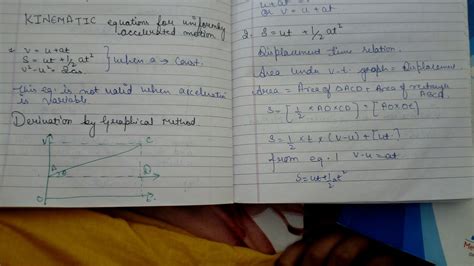 KINEMATIC equations for uniformly
accelerated motion
v = u + at
S = ut + 1/2 at²
v² - u² = 2as
when a → Const.
This eq. is not valid when acceleration
is variable
Derivation by Graphical method
V
C
A
θ
D
O
B
or v = u + at
2. S = ut + 1/2 at²
Displacement time relation.
Area under v-t graph = Displacement
Area = Area of ΔACD + Area of rectangle
ABCD
S = [1/2 × AD × CD] + [AO × OC]
S = 1/2 × t × (v-u) + [ut]
from eq. 1 v-u = at
S = ut + 1/2 at²